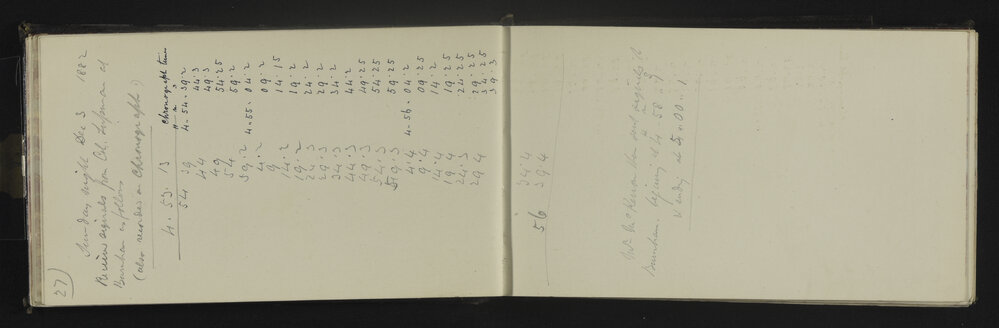 27)
Sunday night Dec 3 1882
Receive signals from Col. Tupman at
Burnham as follows
(also recorded on Chronograph)
4. 53. 13 Chronograph times
54 39 4.54.39.2
44 44.3
49 49.3
54 54.25
59.2 59.2
4.2 4.55.04.2
9 09.2
14.2 14.15
19.2 19.2
24.3 24.2
29.3 29.2
34.3 34.2
44.3 44.2
49.3 49.25
54.3 54.25
59.3 59.25
4.4 4.56.04.2
9.4 09.25
14.4 14.2
19.4 19.25
24.3 24.25
29.4 29.25
34.25
39.3
34.4
56 39.4
Mr McKerrow then sent signals to
Burnham. begining at 4 58 9
& ending at 5.00.1